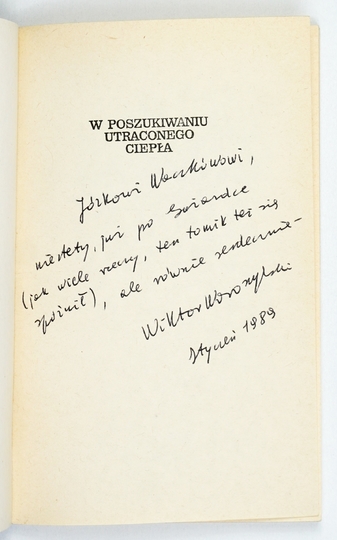 W POSZUKIWANIU
UTRACONEGO
CIEPŁA
Józkowi Waczkówowi,
niestety, już po Gwiazdce
(jak wiele rzeczy, ten tomik też się
spóźnił), ale równie serdecznie –
Wiktor Woroszylski
styczeń 1989